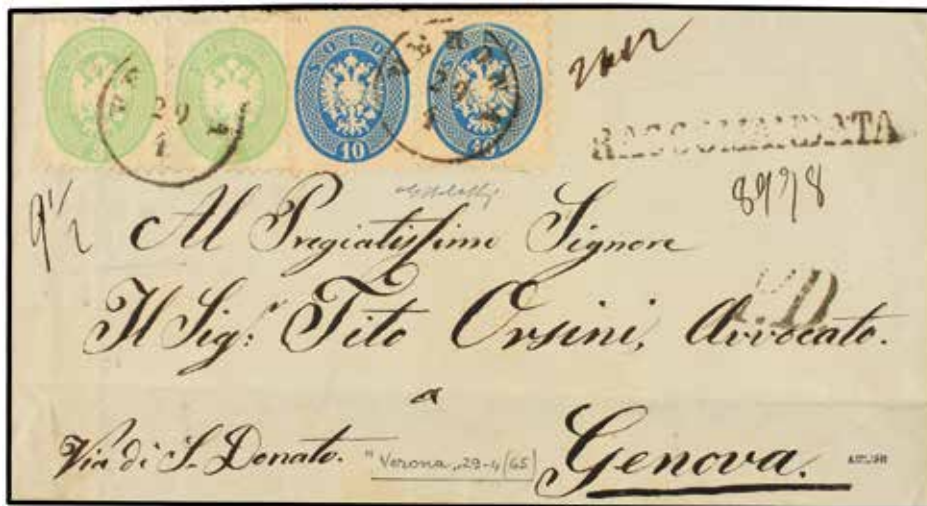 SOLDI SOLDI
10
VERONA
29
4
RACCOMANDATA
8978
9 1/2
Al Pregiatissimo Signore
Il Sigr: Tito Orsini, Avvocato.
P.D.
a
Via di S. Donato.
"Verona, 29-4/65)
Genova.